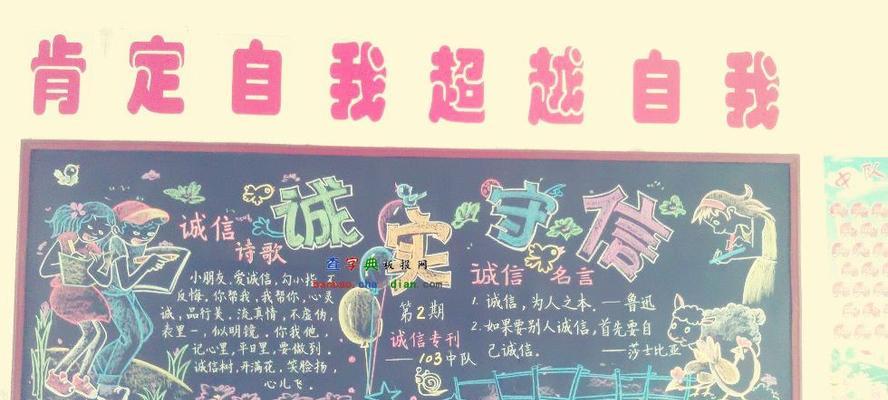 肯定自我超越自我
诚实守信
诚信
诗歌
小朋友,爱诚信,勾小指,不
反悔,你帮我,我帮你,心灵
诚,品行美,流真情,不虚伪,
表里一,似明镜。你我他,
记心里,平日里,要做到。
诚信树,开满花,笑脸扬,
心儿飞。
查字典板报网
banbao.chazidian.com
第2期
诚信专刊
——103中队
诚信 名言
1. 诚信,为人之本。——鲁迅
2. 如果要别人诚信,首先要自
己诚信。 ——莎士比亚
中队